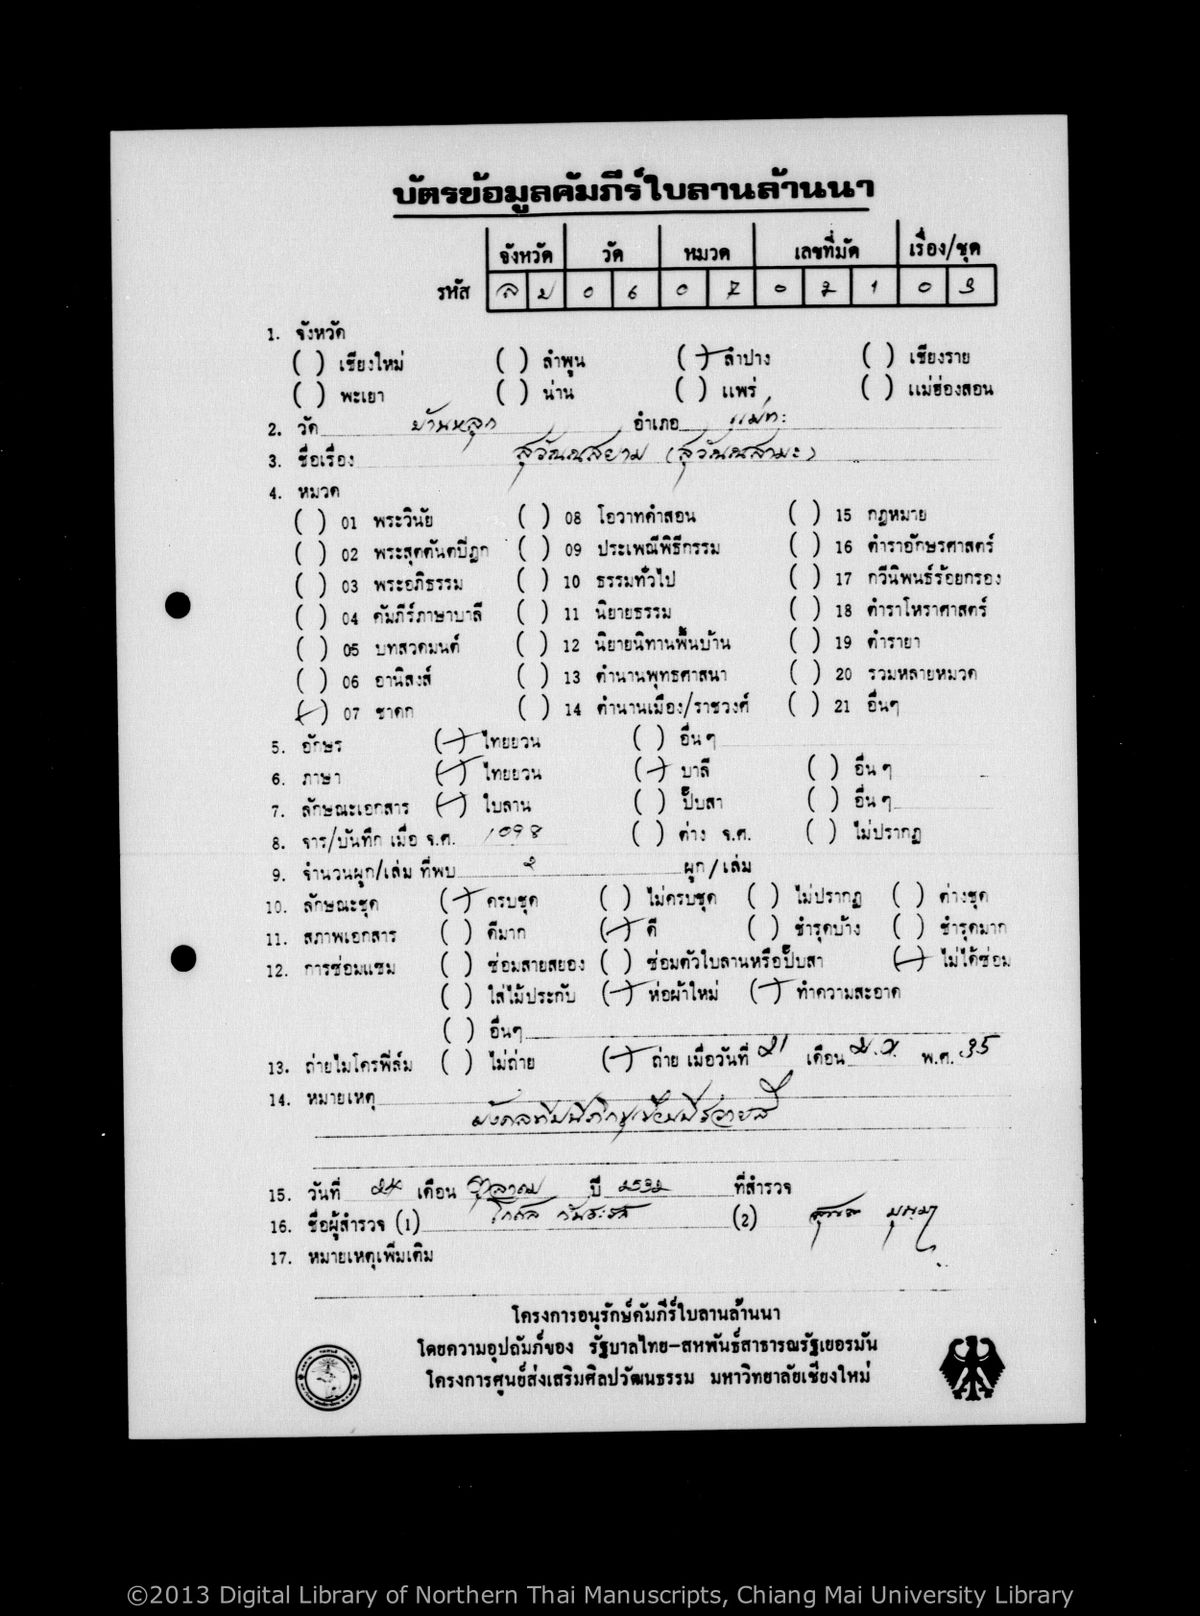 บัตรข้อมูลคัมภีร์ใบลานล้านนา
จังหวัด วัด หมวด เลขที่มัด เรื่อง/ชุด
รหัส ล ป 0 6 0 7 0 2 1 0 3
1. จังหวัด
( ) เชียงใหม่ ( ) ลำพูน (+) ลำปาง ( ) เชียงราย
( ) พะเยา ( ) น่าน ( ) แพร่ ( ) แม่ฮ่องสอน
2. วัด บ้านหลุก อำเภอ แม่ทะ
3. ชื่อเรื่อง สุวัณณสยาม (สุวัณณสามะ)
4. หมวด
( ) 01 พระวินัย ( ) 08 โอวาทคำสอน ( ) 15 กฎหมาย
( ) 02 พระสุตตันตปิฎก ( ) 09 ประเพณีพิธีกรรม ( ) 16 ตำราอักษรศาสตร์
( ) 03 พระอภิธรรม ( ) 10 ธรรมทั่วไป ( ) 17 กวีนิพนธ์ร้อยกรอง
( ) 04 คัมภีร์ภาษาบาลี ( ) 11 นิยายธรรม ( ) 18 ตำราโหราศาสตร์
( ) 05 บทสวดมนต์ ( ) 12 นิยายนิทานพื้นบ้าน ( ) 19 ตำรายา
( ) 06 อานิสงส์ ( ) 13 ตำนานพุทธศาสนา ( ) 20 รวมหลายหมวด
(+) 07 ชาดก ( ) 14 ตำนานเมือง/ราชวงศ์ ( ) 21 อื่นๆ
5. อักษร (+) ไทยยวน ( ) อื่น ๆ
6. ภาษา (+) ไทยยวน (+) บาลี ( ) อื่น ๆ
7. ลักษณะเอกสาร (+) ใบลาน ( ) ปั๊บสา ( ) อื่น ๆ
8. จาร/บันทึก เมื่อ จ.ศ. 1098 ( ) ต่าง จ.ศ. ( ) ไม่ปรากฏ
9. จำนวนผูก/เล่ม ที่พบ ผูก/เล่ม
10. ลักษณะชุด (+) ครบชุด ( ) ไม่ครบชุด ( ) ไม่ปรากฏ ( ) ต่างชุด
11. สภาพเอกสาร ( ) ดีมาก (+) ดี ( ) ชำรุดบ้าง ( ) ชำรุดมาก
12. การซ่อมแซม ( ) ซ่อมสายสยอง ( ) ซ่อมตัวใบลานหรือปั๊บสา (+) ไม่ได้ซ่อม
( ) ใส่ไม้ประกับ (+) ห่อผ้าใหม่ (+) ทำความสะอาด
( ) อื่นๆ
13. ถ่ายไมโครฟิล์ม ( ) ไม่ถ่าย (+) ถ่าย เมื่อวันที่ 21 เดือน พ.ศ. 35
14. หมายเหตุ
15. วันที่ 24 เดือน ตุลาคม ปี 2532 ที่สำรวจ
16. ชื่อผู้สำรวจ (1) (2)
17. หมายเหตุเพิ่มเติม
โครงการอนุรักษ์คัมภีร์ใบลานล้านนา
โดยความอุปถัมภ์ของ รัฐบาลไทย-สหพันธ์สาธารณรัฐเยอรมัน
โครงการศูนย์ส่งเสริมศิลปวัฒนธรรม มหาวิทยาลัยเชียงใหม่
©2013 Digital Library of Northern Thai Manuscripts, Chiang Mai University Library